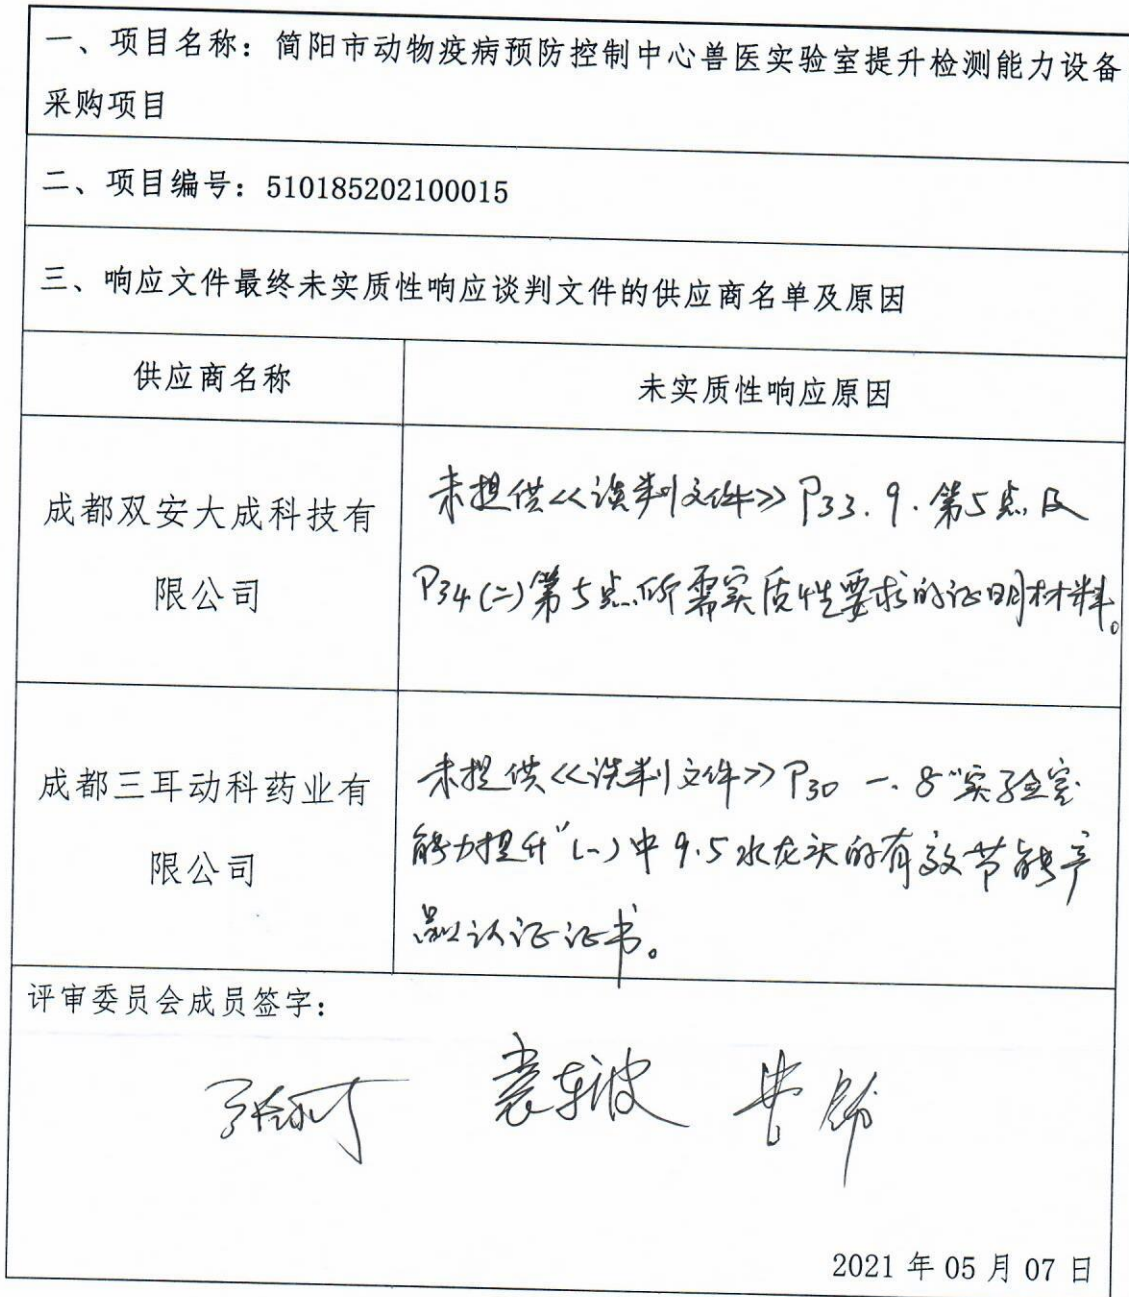 一、项目名称：简阳市动物疫病预防控制中心兽医实验室提升检测能力设备
采购项目
二、项目编号：510185202100015
三、响应文件最终未实质性响应谈判文件的供应商名单及原因
供应商名称
未实质性响应原因
成都双安大成科技有
限公司
未提供<<谈判文件>>P33.9.第5点及
P34(二)第5点所需实质性要求的证明材料。
成都三耳动科药业有
限公司
未提供<<谈判文件>>P30 一.8"实验室
能力提升"(一)中9.5水龙头的有效节能产
品认证证书。
评审委员会成员签字：
2021 年 05 月 07 日